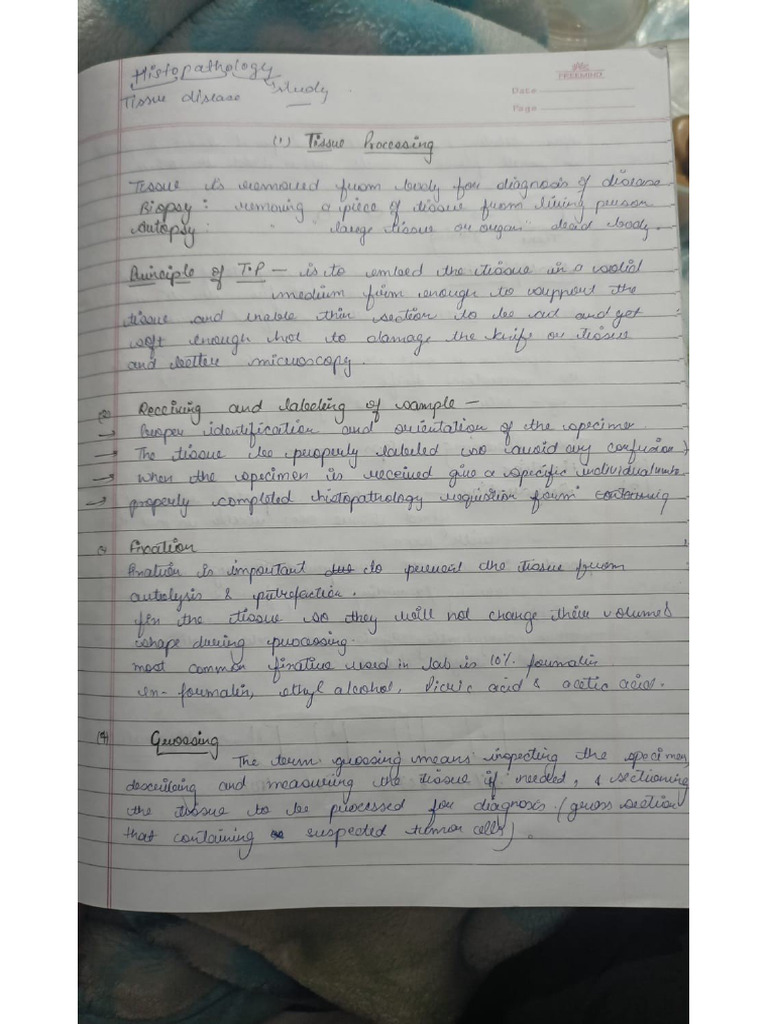 Histopathology
study
Tissue disease
FREEMIND
Date
Page
(1) Tissue Processing
Tissue is removed from body for diagnosis of disease
Biopsy : removing a piece of tissue from living person
Autopsy : " " large tissue or organ " dead body.
Principle of T.P — is to embed the tissue in a solid
medium firm enough to support the
tissue and inable thin section to be cut and yet
soft enough not to damage the knife or tissue
and better microscopy.
(2) Receiving and labeling of sample —
→ Proper identification and orientation of the specimen
→ The tissue be properly labeled so avoid any confusion
→ when the specimen is received give a specific individual
→ properly completed histopathology requisition form containing
Fixation
fixation is important to prevent the tissue from
autolysis & putrefaction.
fix the tissue so they will not change their volume &
shape during processing.
most common fixative used in lab is 10% formalin
ex- formalin, ethyl alcohol, Picric acid & acetic acid.
(4) Grossing
The term grossing means inspecting the specimen,
describing and measuring the tissue if needed, & sectioning
the tissue to be processed for diagnosis. (gross section
that containing suspected tumor cells).